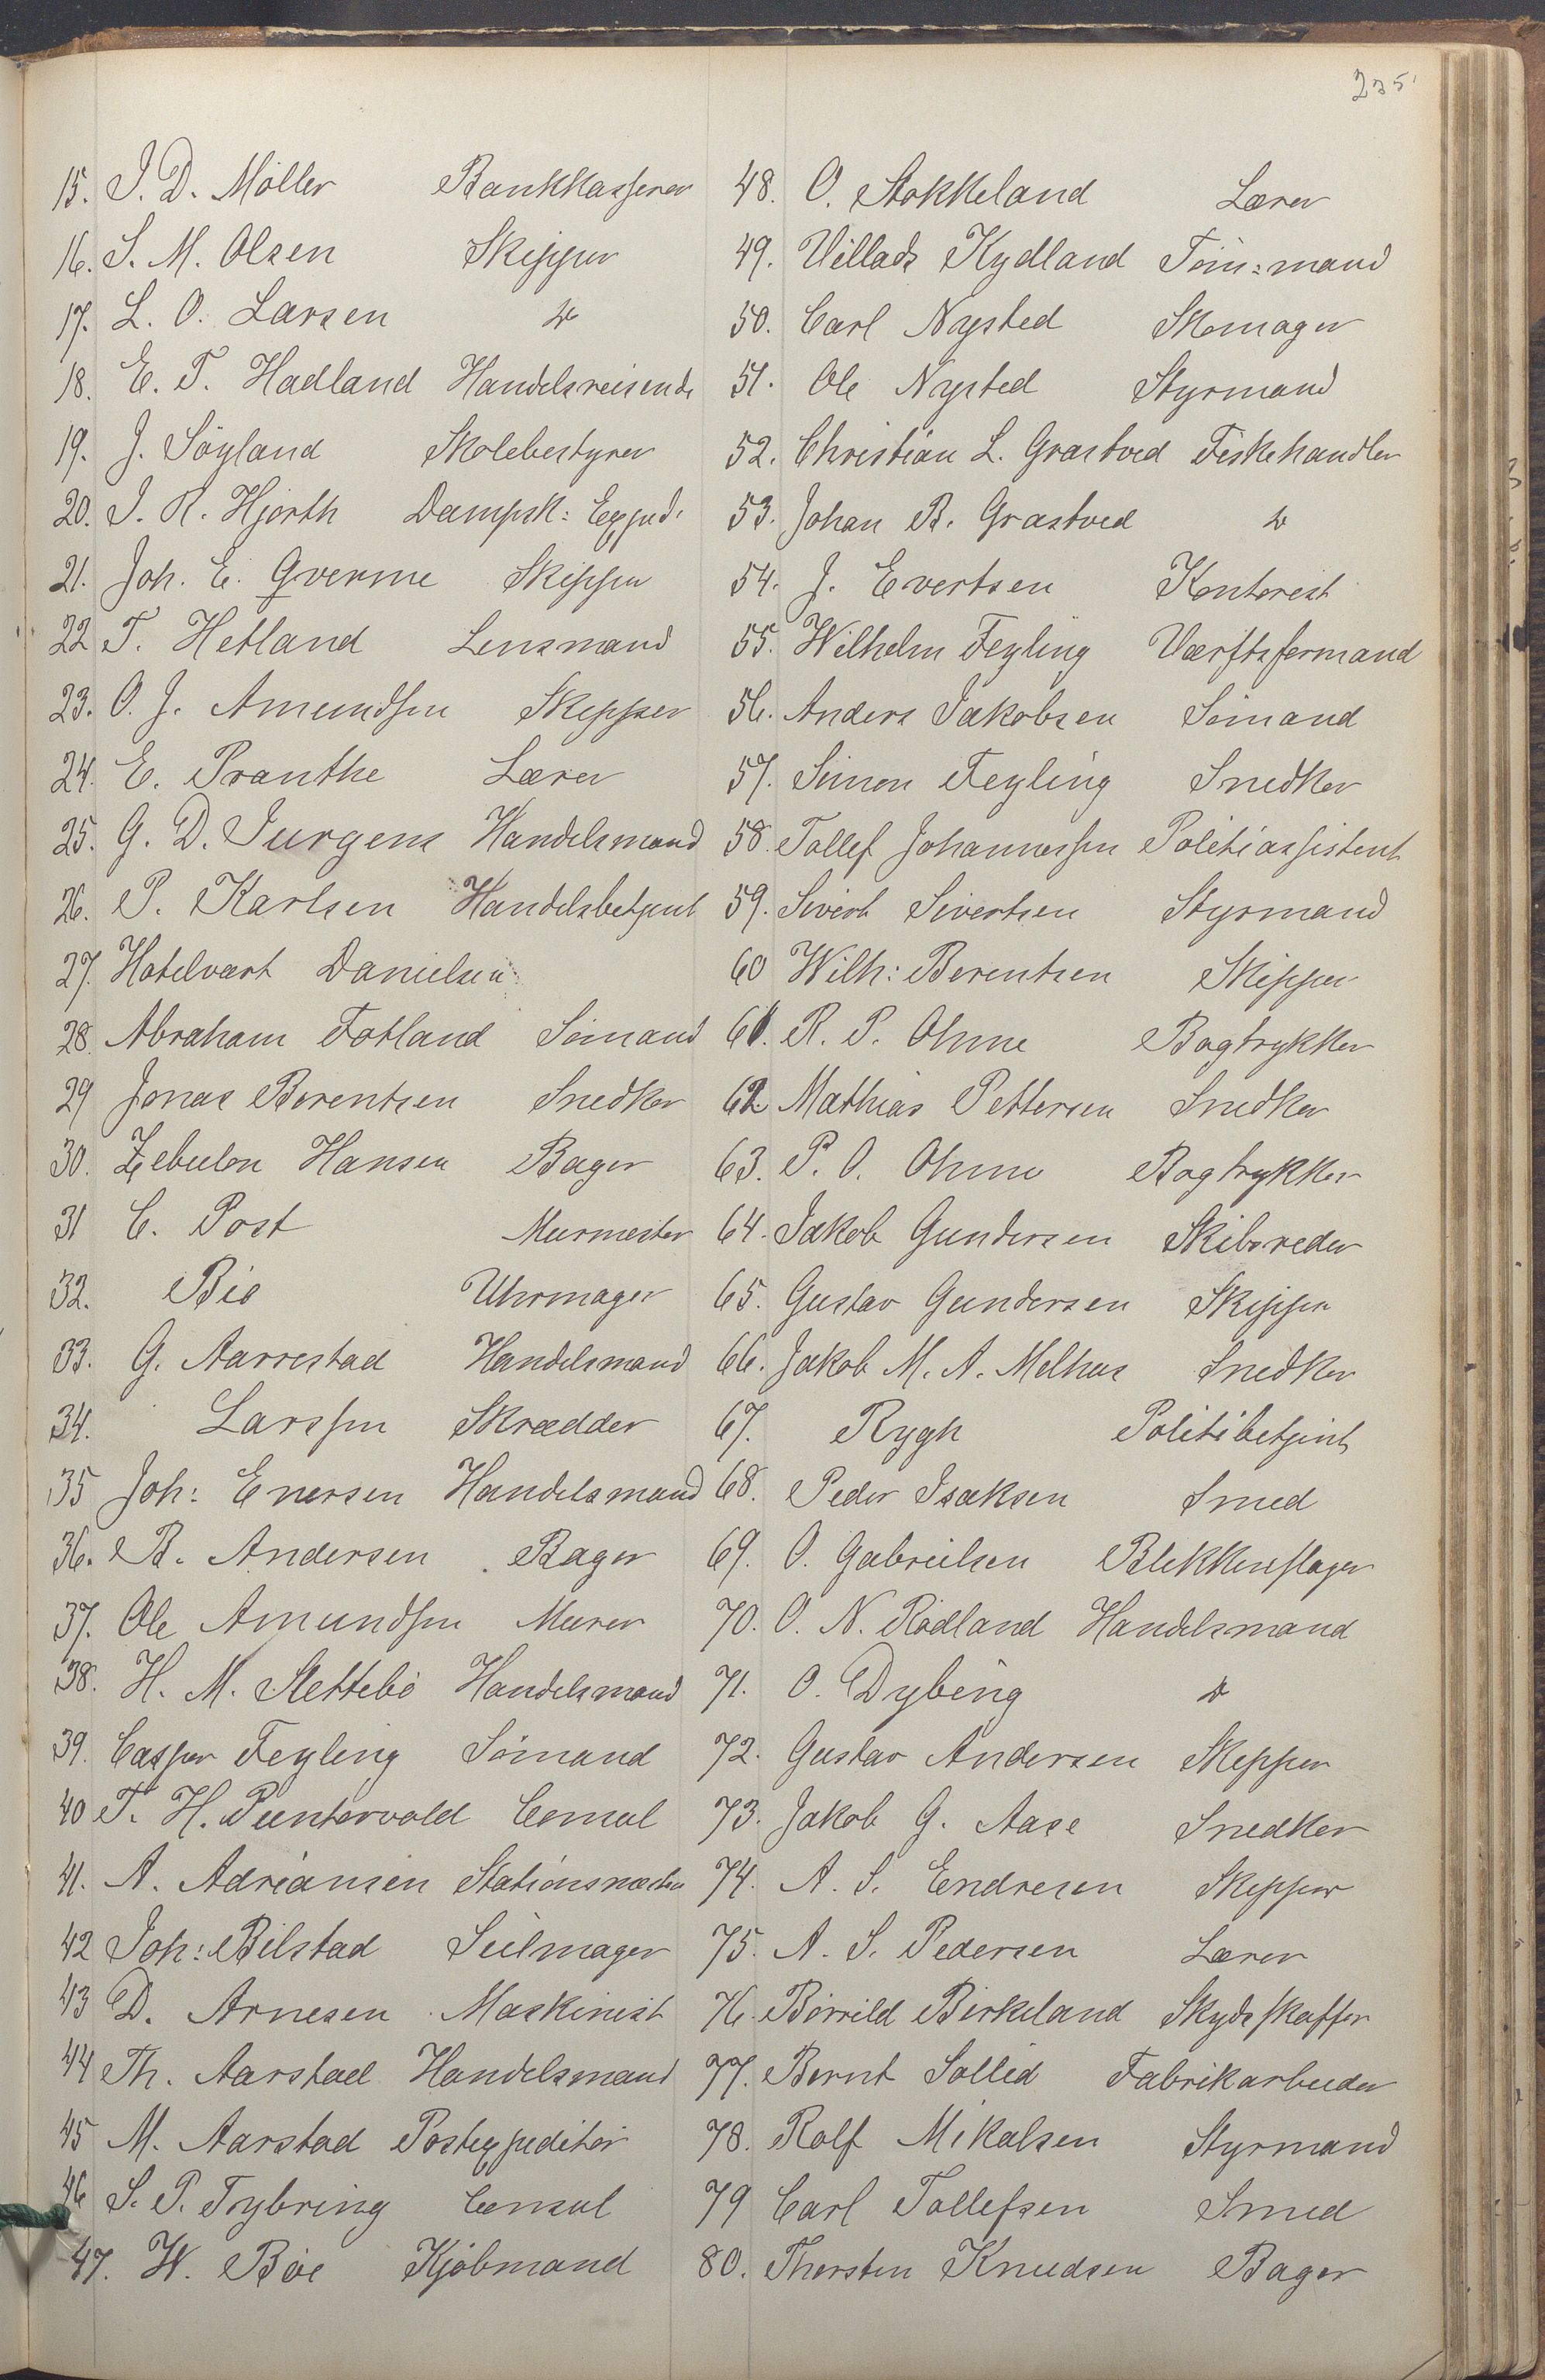 235
15. J. D. Möller Bankkasserer
16. S. M. Olsen Skipper
17. L. O. Larsen do
18. E. T. Hadland Handelsreisende
19. J. Söyland Skolebestyrer
20. J. R. Hjorth Dampsk: Exped.
21. Joh. E. Qverme Skipper
22 T. Hetland Lensmand
23. O. J. Amundsen Skipper
24. E. Pranthe Lærer
25. G. D. Jurgens Handelsmand
26. P. Karlsen Handelsbetjent
27. Hotelvært Danielsen
28. Abraham Fotland Sömand
29 Jonas Berentsen Snedker
30. Zebulon Hansen Bager
31 C. Post Murmester
32. Bie Uhrmager
33. G. Aarrestad Handelsmand
34. Larssen Skrædder
35 Joh: Enersen Handelsmand
36. B. Andersen Bager
37. Ole Amundsen Murer
38. H. M. Slettebö Handelsmand
39. Casper Feyling Sömand
40 T. H. Puntervold Consul
41. A. Adriansen Stationsmester
42 Joh: Bilstad Seilmager
43 D. Arnesen Maskinist
44 Th. Aarstad Handelsmand
45 M. Aarstad Postexpeditör
46 S. P. Trybring Consul
47. W. Böe Kjöbmand
48. O. Stokkeland Lærer
49. Villads Kydland Töm:mand
50. Carl Nysted Skomager
51. Ole Nysted Styrmand
52. Christian L. Grastved Fiskehandler
53. Johan B. Grastved do
54. J. Evertsen Kontorist
55. Wilhelm Feyling Værftsformand
56. Anders Jakobsen Sömand
57. Simon Feyling Snedker
58. Tollef Johannessen Politiassistent
59. Sivert Sivertsen Styrmand
60 Wilh: Berentsen Skipper
61. R. P. Ohme Bogtrykker
62 Mathias Pettersen Snedker
63. P. O. Ohme Bogtrykker
64. Jakob Gundersen Skibsreder
65. Gustav Gundersen Skipper
66. Jakob M. A. Melhus Snedker
67. Rygh Politibetjent
68. Peder Isaksen Smed
69. O. Gabrielsen Blikkenslager
70. O. N. Rödland Handelsmand
71. O. Dybing do
72. Gustav Andersen Skipper
73. Jakob G. Aase Snedker
74. A. S. Endresen Skipper
75. A. S. Pedersen Lærer
76. Börrild Birkeland Skydsskaffer
77. Bernt Sollid Fabrikarbeider
78. Rolf Mikalsen Styrmand
79 Carl Tollefsen Smed
80. Thorsten Knudsen Bager